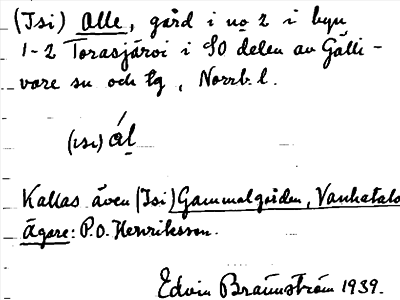 (Isi) Alle, gård i no 2 i byn
1-2 Torasjärvi i SO delen av Gälli-
vare sn och tg, Norrb. l.
(isi) ál
Kallas även (Isi) Gammalgården, Vanhatalo
Ägare: P.O. Henriksson.
Edvin Brännström 1939.